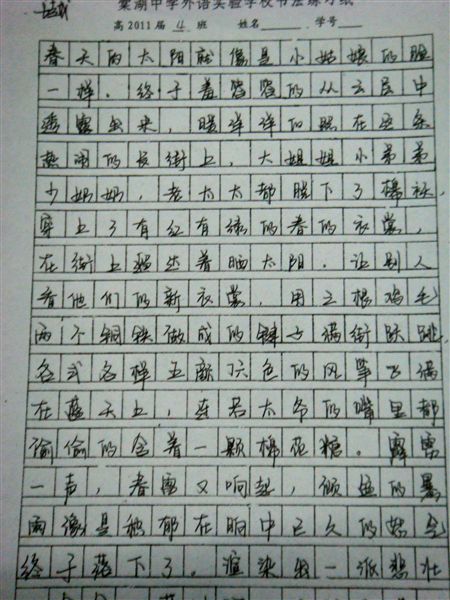 棠湖中学外语实验学校书法练习纸
高2011届 4 班 姓名 学号
春天的太阳就像是小姑娘的脸
一样，终于羞答答的从云层中
透露出来，暖洋洋的照在这条
热闹的长街上，大姐姐小弟弟
少奶奶，老太太都脱下了棉袄，
穿上了有红有绿的春的衣裳，
在街上踏着晒太阳，让别人
看他们的新衣裳，用三根鸡毛
两个铜铁做成的毽子满街跃跳，
各式各样五颜六色的风筝飞满
在蓝天上，连若太爷的嘴里都
偷偷的含着一颗棉花糖。霹雳
一声，春雷又响起，倾盆的暴
雨像是抑郁在胸中已久的怒气
终于落下了，渲染出一派悲壮